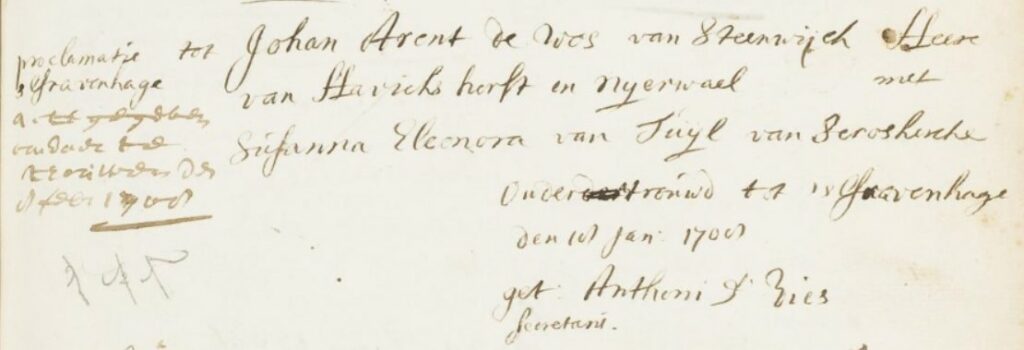 proclamatie tot
s'Gravenhage
act gegeven
om daer te
trouwen den
feb: 1708
Johan Arent de Vos van Steenwijck Heere
van Havickshorst en Nyerwael met
Susanna Eleonora van Tuyl van Seroskercke
Ondertrouwd tot 's Gravenhage
den 18 Jan: 1708
get: Anthoni d' Ries
Secretaris.